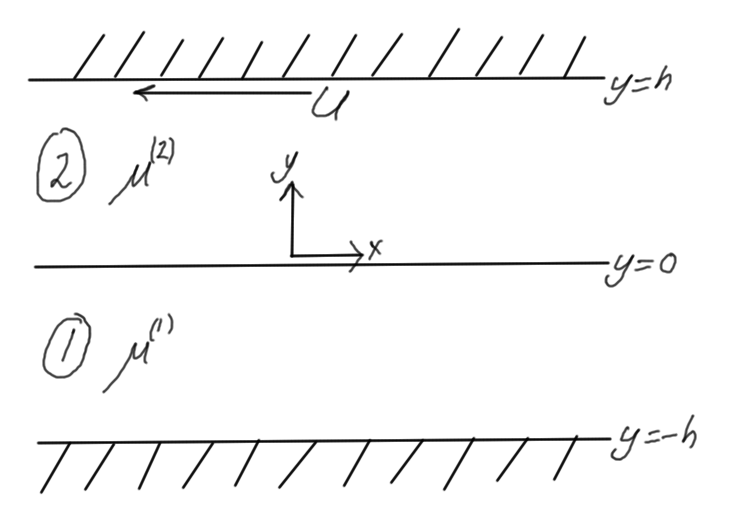 y=h
U
② μ⁽²⁾
y
x
y=0
① μ⁽¹⁾
y=-h